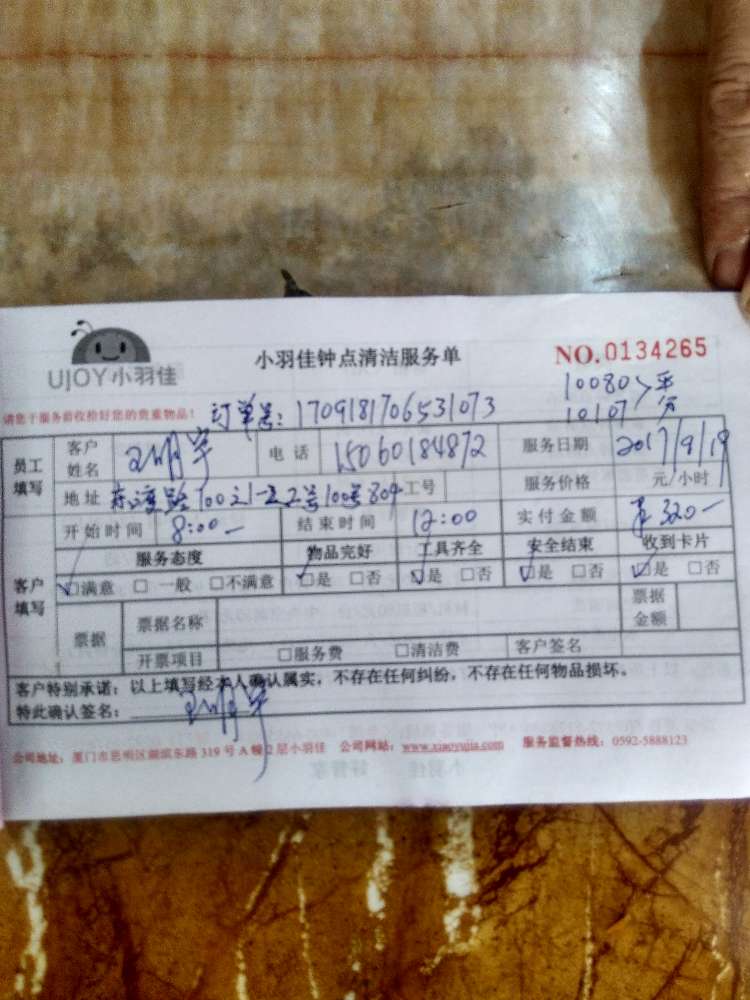 小羽佳钟点清洁服务单
NO.0134265
UJOY小羽佳
10080
10107 > 平分
请您于服务前收拾好您的贵重物品! 订单号: 1709181706531073
员工填写 客户姓名 王明宇 电话 15060184872 服务日期 2017/9/19
地址 804 工号 服务价格 元/小时
开始时间 8:00 结束时间 12:00 实付金额 320
客户填写 服务态度 物品完好 工具齐全 安全结束 收到卡片
☑满意 □一般 □不满意 ☑是 □否 ☑是 □否 ☑是 □否 ☑是 □否
票据 票据名称 票据金额
开票项目 □服务费 □清洁费 客户签名
客户特别承诺: 以上填写经本人确认属实,不存在任何纠纷,不存在任何物品损坏。
特此确认签名: 王明宇
公司地址: 厦门市思明区湖滨东路319号A幢2层小羽佳 公司网站: www.xiaoyujia.com 服务监督热线: 0592-5888123